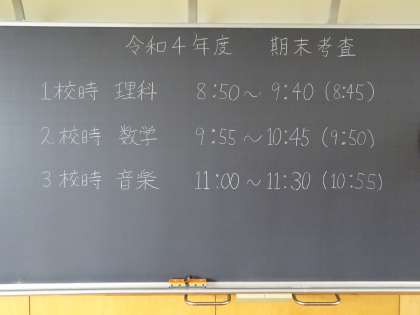 令和4年度 期末考査
1校時 理科 8:50〜9:40 (8:45)
2校時 数学 9:55〜10:45 (9:50)
3校時 音楽 11:00〜11:30 (10:55)